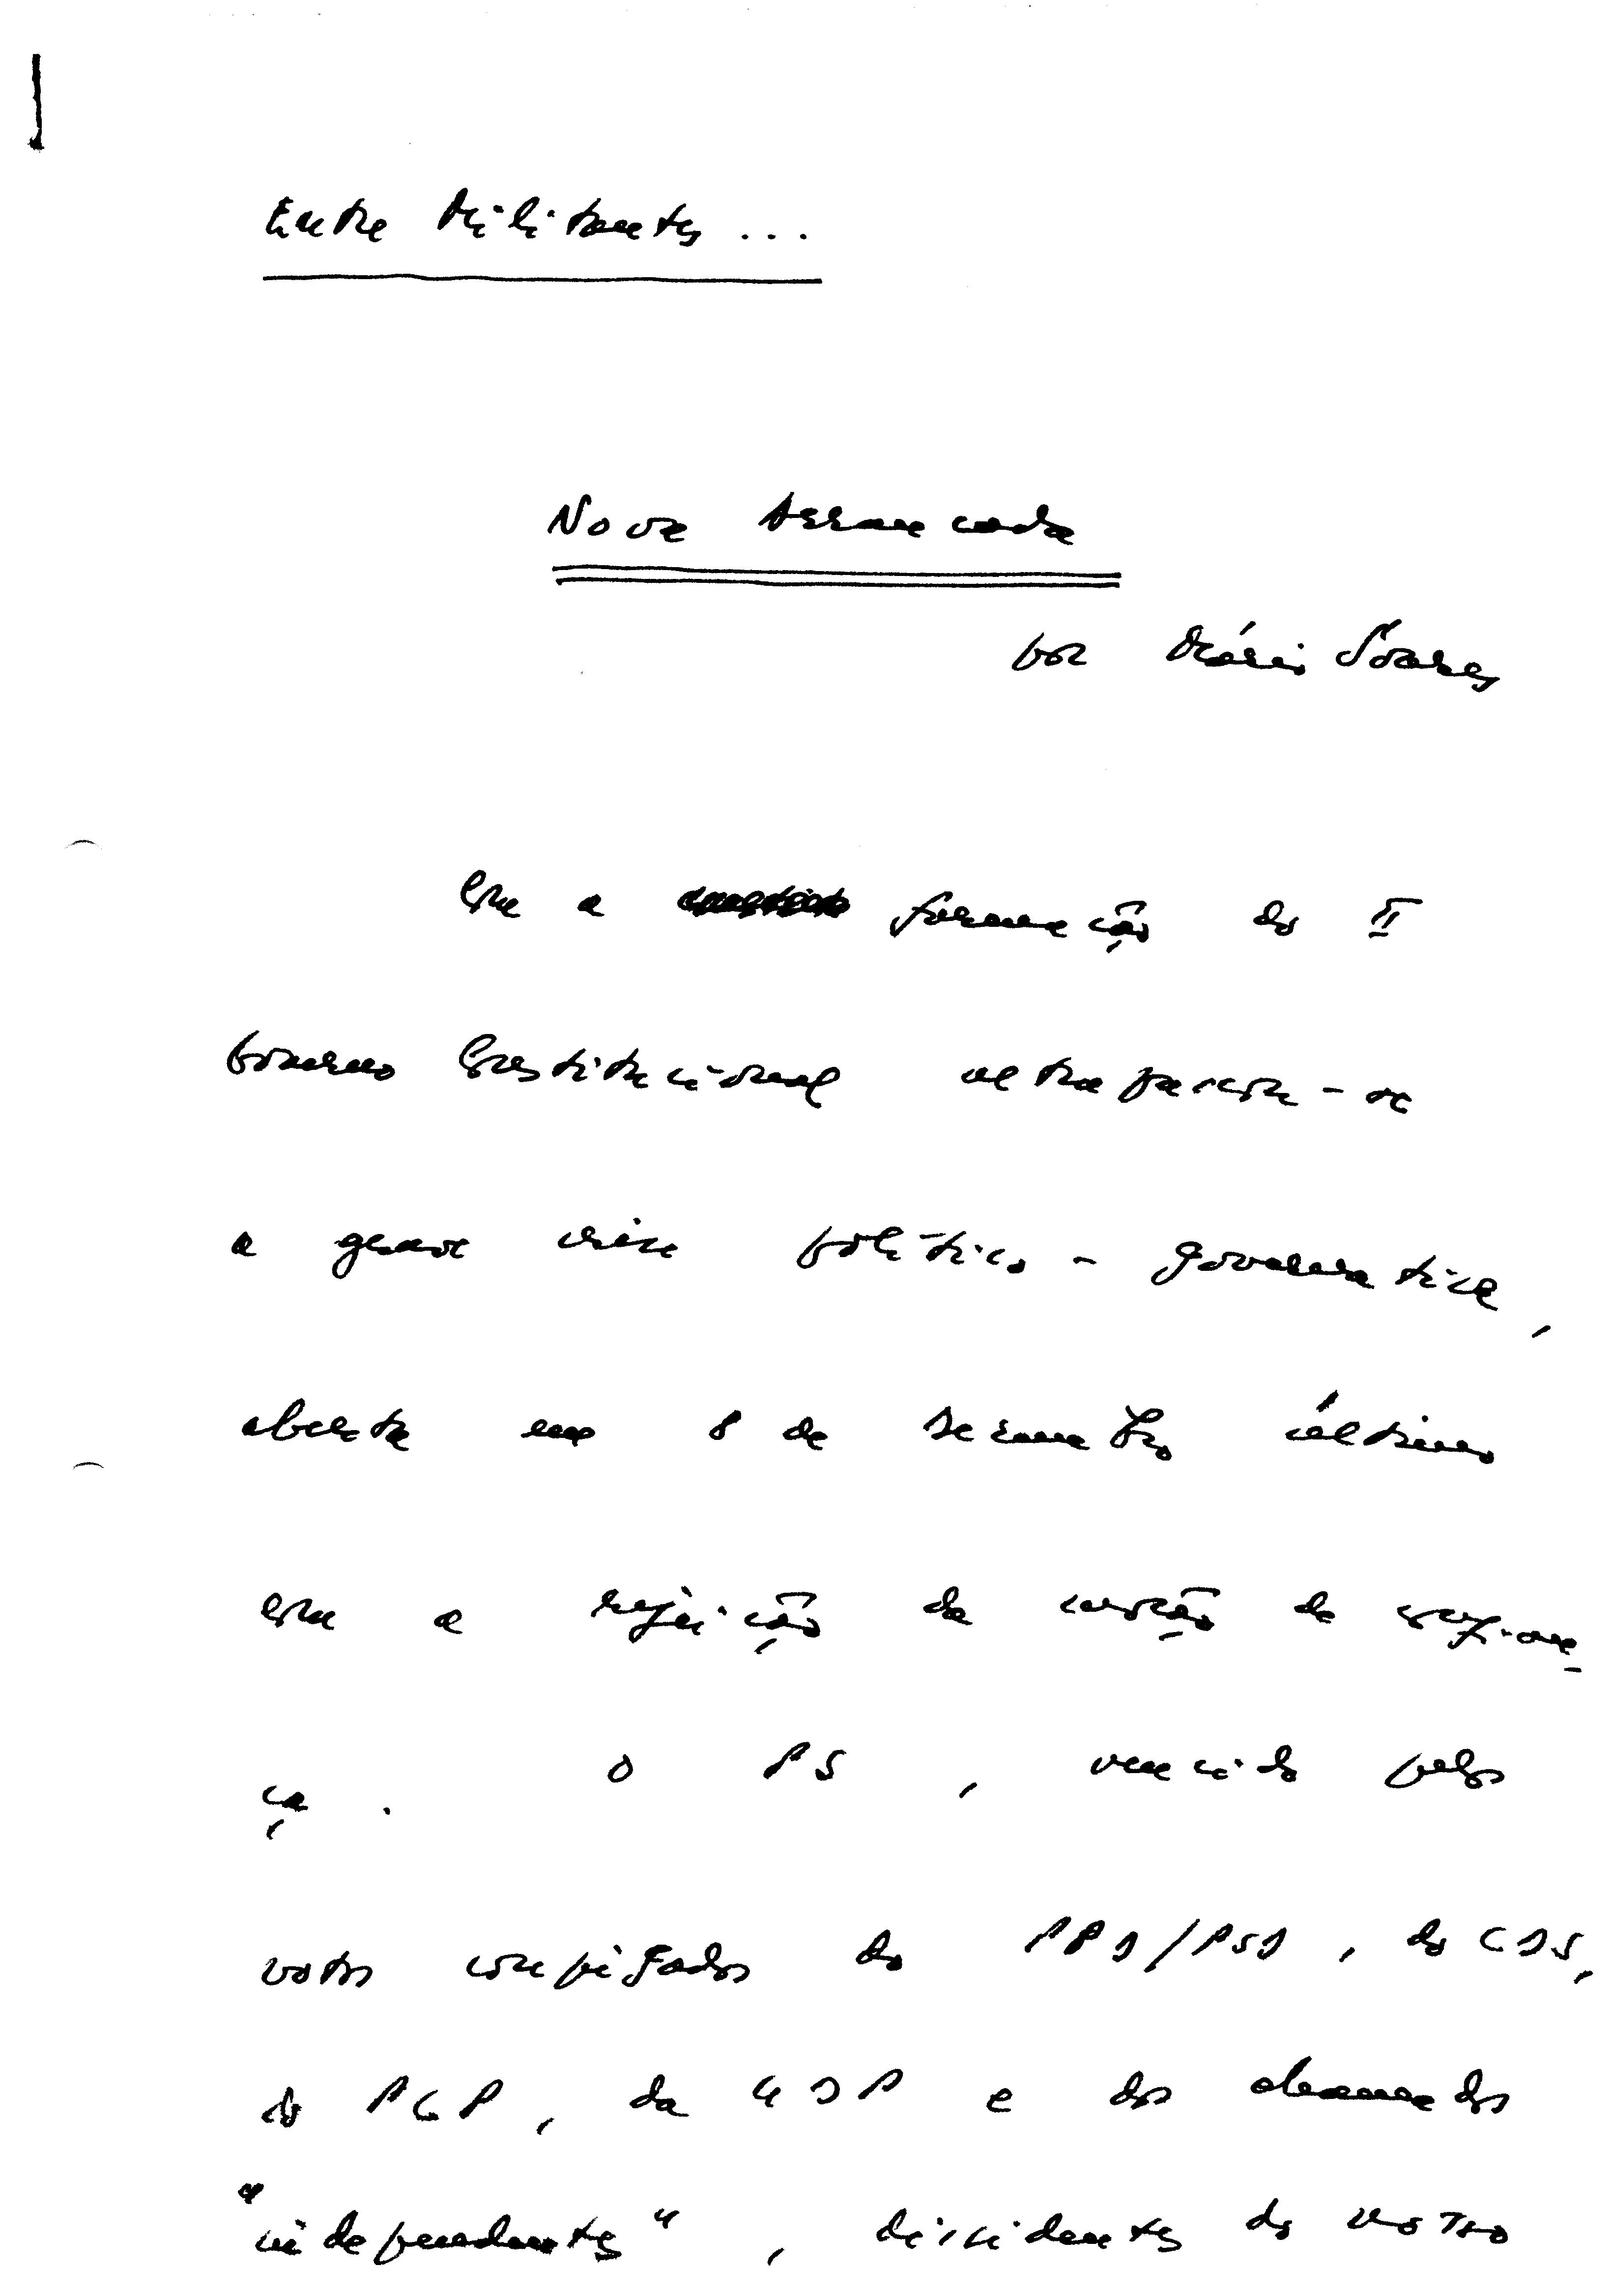 Entre Militantes ...
Nova Arrancada
por Mário Soares
Com a formação do II
Governo Constitucional ultrapassou-se
a grave crise político-governativa,
aberta em 8 de Dezembro último
com a rejeição da moção de confian-
ça. O PS, vencido pelos
votos conjugados do PPD/PSD, do CDS,
do PCP, da UDP e dos chamados
"independentes", dissidentes do nosso